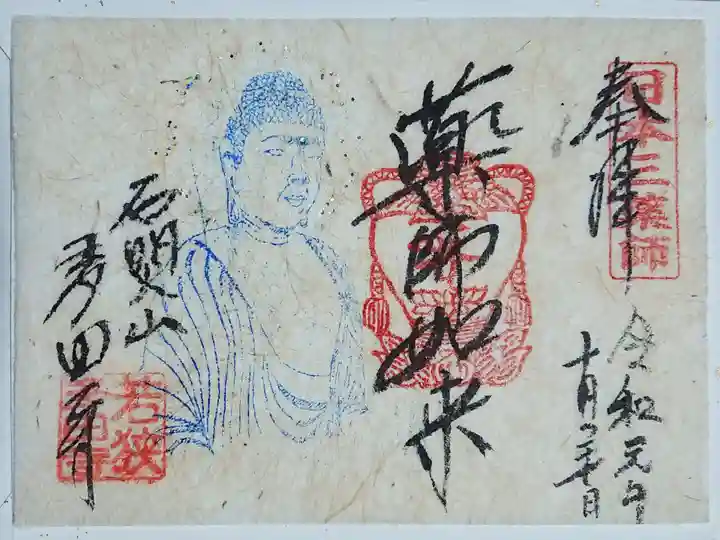 日本三薬師
奉拝
令和元年
十月二十日
薬師如来
石照山
多田寺
若狭
多田寺